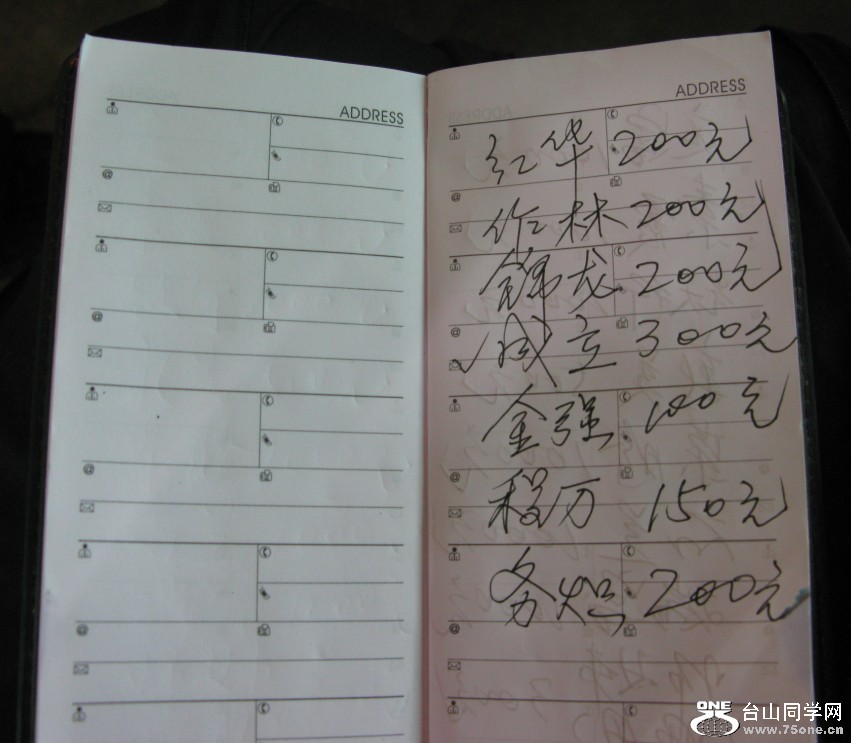 ADDRESS
ADDRESS
红华 200元
作林 200元
锦龙 200元
成立 300元
金强 100元
程历 150元
务灿 200元
ONE 台山同学网
www.75one.cn